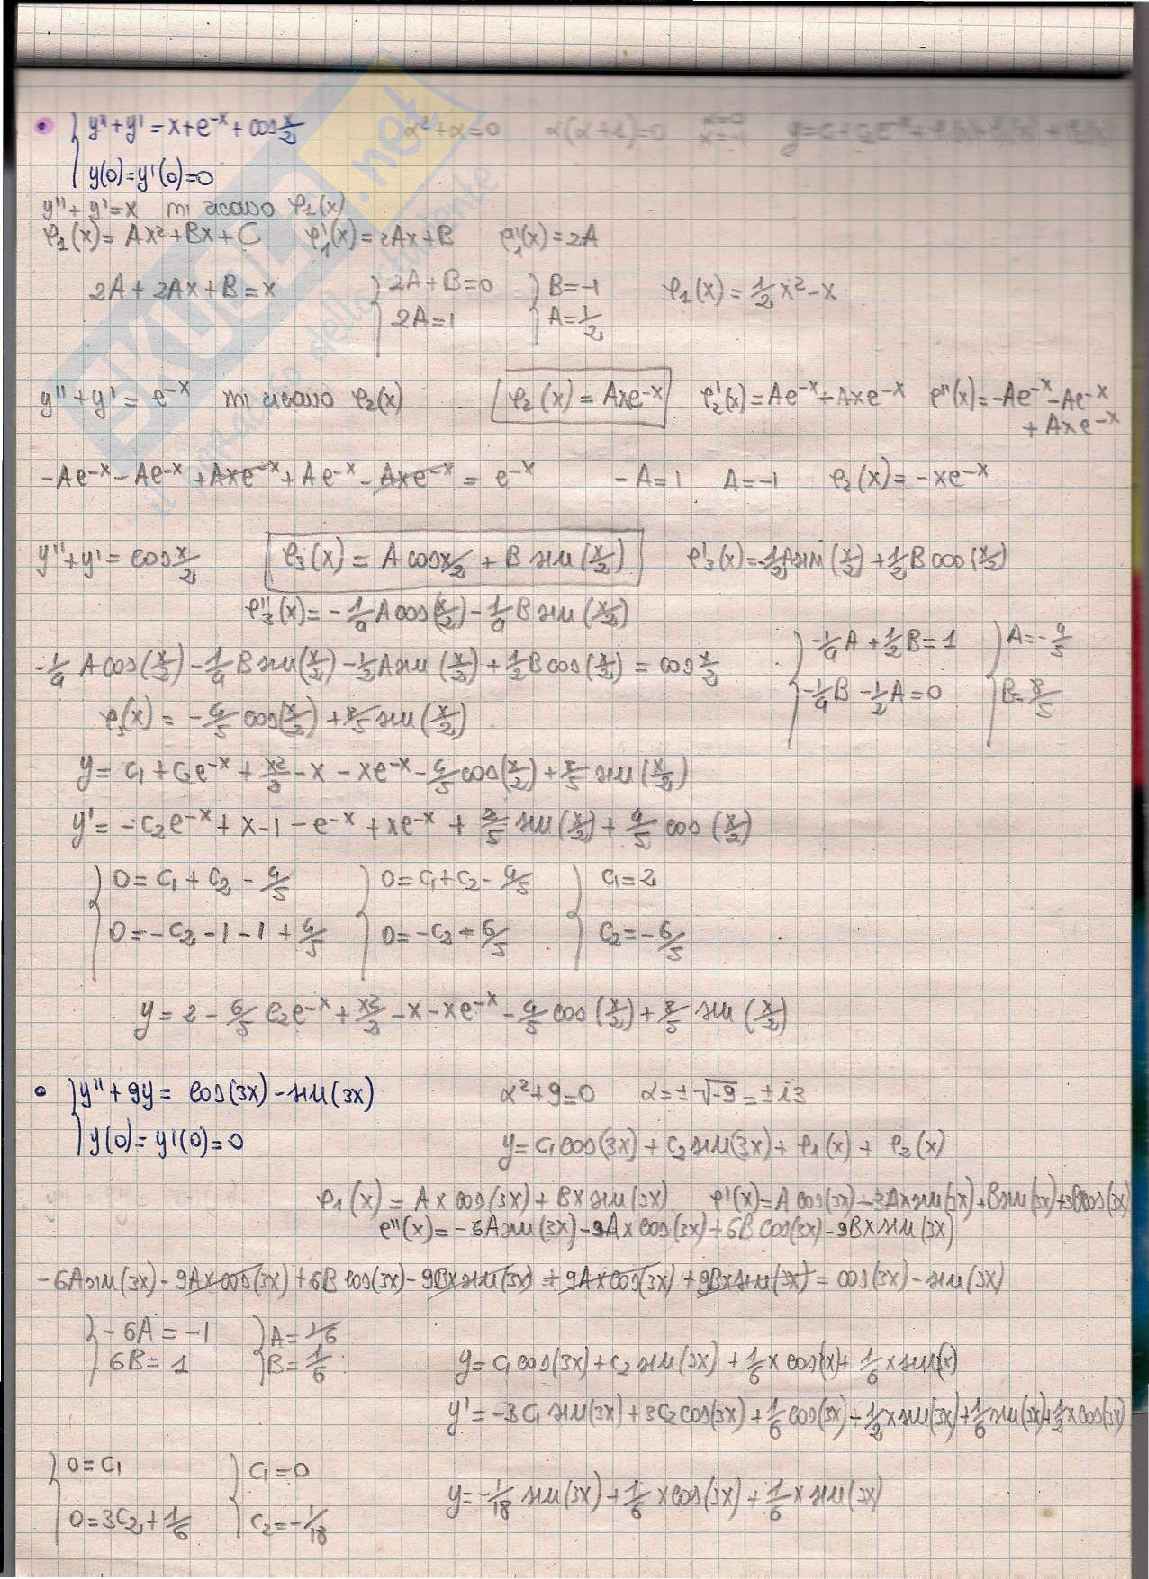 y''+y'=x+e^-x+cos x/2   α²+α=0   α(α+1)=0   α=0
y(0)=y'(0)=0   α=-1
y''+y'=x   φ₁(x)
φ₁(x)=Ax²+Bx+C   φ₁'(x)=2Ax+B   φ₁''(x)=2A
2A+2Ax+B=x   2A+B=0   B=-1   φ₁(x)=1/2 x²-x
2A=1   A=1/2
y''+y'=e^-x   φ₂(x)   φ₂(x)=Axe^-x   φ₂'(x)=Ae^-x-Axe^-x   φ''(x)=-Ae^-x-Ae^-x
+Axe^-x
-Ae^-x-Ae^-x+Axe^-x+Ae^-x-Axe^-x=e^-x   -A=1   A=-1   φ₂(x)=-xe^-x
y''+y'=cos x/2   φ₃(x)=A cos x/2+B sin(x/2)   φ₃'(x)=-1/2 A sin(x/2)+1/2 B cos(x/2)
φ₃''(x)=-1/4 A cos(x/2)-1/4 B sin(x/2)
-1/4 A+1/2 B=1   A=-4/5
-1/4 A cos(x/2)-1/4 B sin(x/2)-1/2 A sin(x/2)+1/2 B cos(x/2)=cos x/2
-1/4 B-1/2 A=0   B=8/5
φ₃(x)=-4/5 cos(x/2)+8/5 sin(x/2)
y=c₁+c₂e^-x+x²/2-x-xe^-x-4/5 cos(x/2)+8/5 sin(x/2)
y'=-c₂e^-x+x-1-e^-x+xe^-x+2/5 sin(x/2)+4/5 cos(x/2)
0=c₁+c₂-4/5   0=c₁+c₂-4/5   c₁=2
0=-c₂-1-1+4/5   0=-c₂-6/5   c₂=-6/5
y=2-6/5 c₂e^-x+x²/2-x-xe^-x-4/5 cos(x/2)+8/5 sin(x/2)
y''+9y=cos(3x)-sin(3x)   α²+9=0   α=±√-9=±i3
y(0)=y'(0)=0
y=c₁cos(3x)+c₂sin(3x)+φ₁(x)+φ₂(x)
φ₁(x)=Ax cos(3x)+Bx sin(3x)   φ'(x)=A cos(3x)-3Ax sin(3x)+B sin(3x)+3Bx cos(3x)
φ''(x)=-6A sin(3x)-9Ax cos(3x)+6B cos(3x)-9Bx sin(3x)
-6A sin(3x)-9Ax cos(3x)+6B cos(3x)-9Bx sin(3x)+9Ax cos(3x)+9Bx sin(3x)=cos(3x)-sin(3x)
-6A=-1   A=1/6
6B=1   B=1/6   y=c₁cos(3x)+c₂sin(3x)+1/6 x cos(3x)+1/6 x sin(3x)
y'=-3c₁sin(3x)+3c₂cos(3x)+1/6 cos(3x)-1/2 x sin(3x)+1/6 sin(3x)+1/2 x cos(3x)
0=c₁   c₁=0
y=-1/18 sin(3x)+1/6 x cos(3x)+1/6 x sin(3x)
0=3c₂+1/6   c₂=-1/18